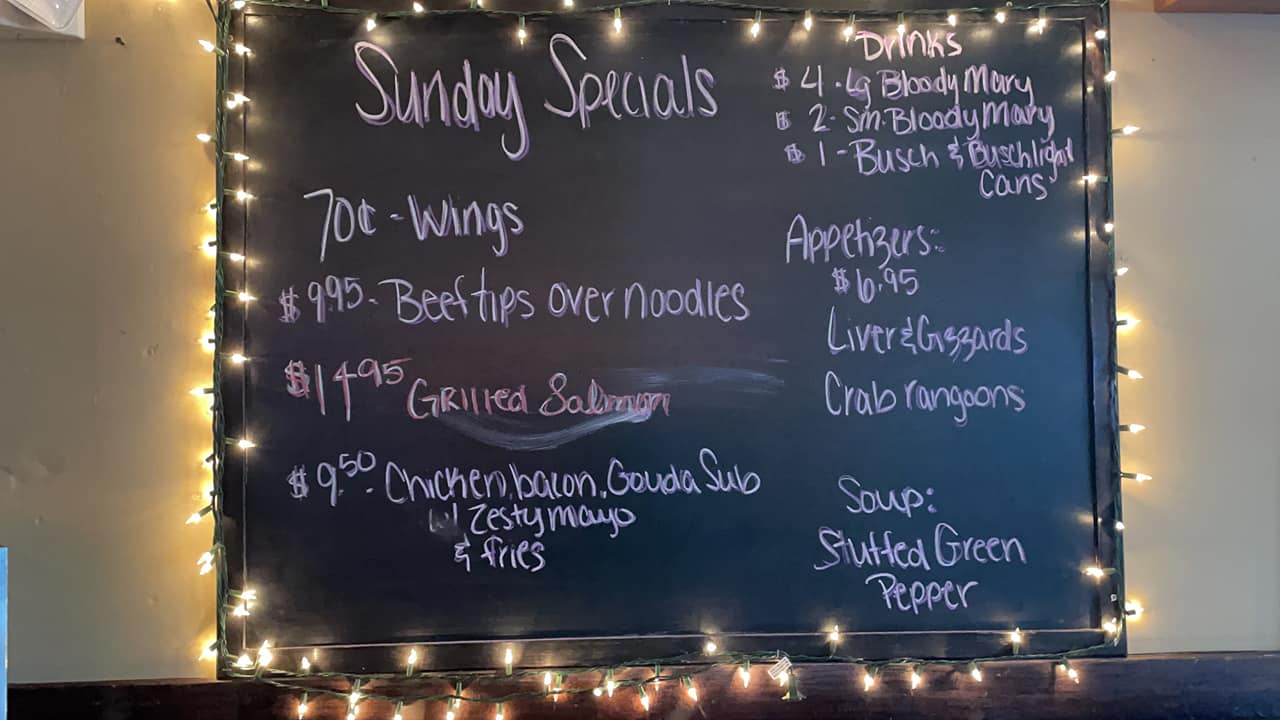 Sunday Specials
70¢ - Wings
$9.95 - Beef tips over noodles
$14.95 Grilled Salmon
$9.50 - Chicken, bacon, Gouda Sub
w/ Zesty mayo
& fries
Drinks
$4 - Lg Bloody Mary
$2 - Sm. Bloody Mary
$1 - Busch & Buschlight
Cans
Appetizers:
$6.95
Liver & Gizzards
Crab rangoons
Soup:
Stuffed Green
Pepper